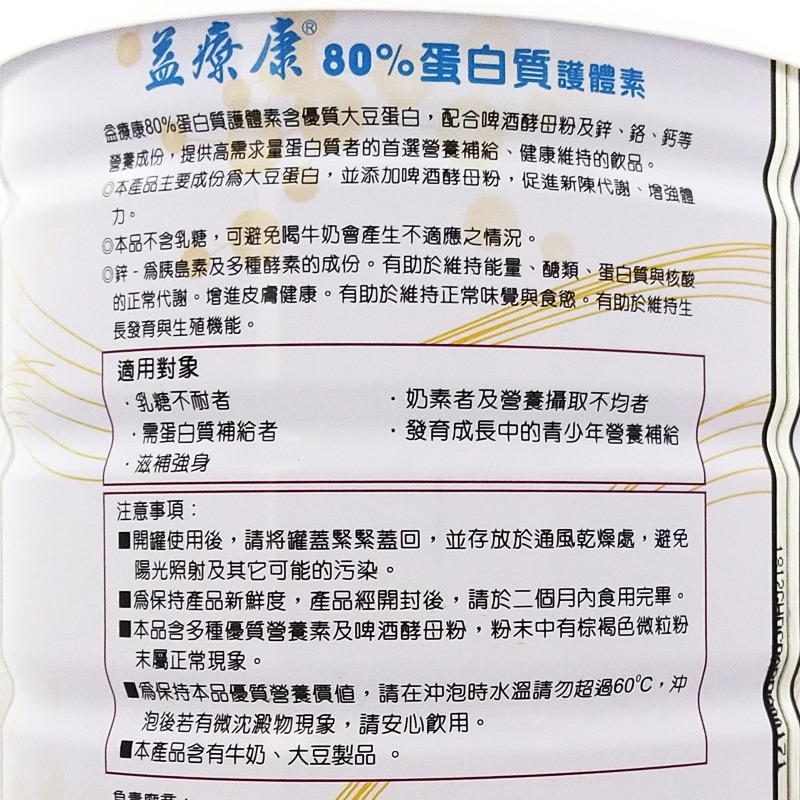 益療康® 80%蛋白質護體素
益療康80%蛋白質護體素含優質大豆蛋白，配合啤酒酵母粉及鋅、鉻、鈣等
營養成份，提供高需求量蛋白質者的首選營養補給、健康維持的飲品。
◎本產品主要成份為大豆蛋白，並添加啤酒酵母粉，促進新陳代謝、增強體
力。
◎本品不含乳糖，可避免喝牛奶會產生不適應之情況。
◎鋅-為胰島素及多種酵素的成份。有助於維持能量、醣類、蛋白質與核酸
的正常代謝。增進皮膚健康。有助於維持正常味覺與食慾。有助於維持生
長發育與生殖機能。
適用對象
・乳糖不耐者 ・奶素者及營養攝取不均者
・需蛋白質補給者 ・發育成長中的青少年營養補給
・滋補強身
注意事項：
■開罐使用後，請將罐蓋緊緊蓋回，並存放於通風乾燥處，避免
陽光照射及其它可能的污染。
■為保持產品新鮮度，產品經開封後，請於二個月內食用完畢。
■本品含多種優質營養素及啤酒酵母粉，粉末中有棕褐色微粒粉
末屬正常現象。
■為保持本品優質營養價值，請在沖泡時水溫請勿超過60℃，沖
泡後若有微沈澱物現象，請安心飲用。
■本產品含有牛奶、大豆製品 。